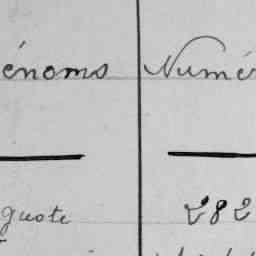 énoms Numér
guste 282